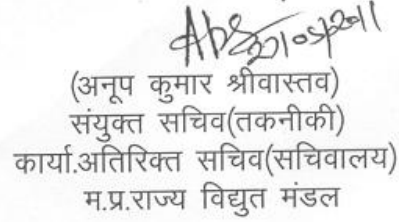 27/05/2011
(अनूप कुमार श्रीवास्तव)
संयुक्त सचिव(तकनीकी)
कार्या.अतिरिक्त सचिव(सचिवालय)
म.प्र.राज्य विद्युत मंडल